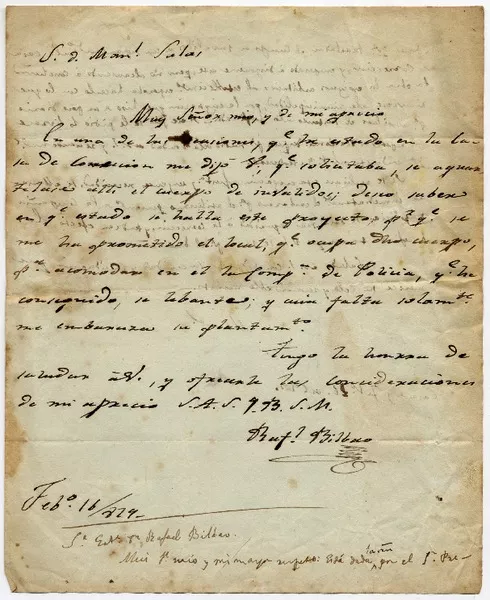 S. d. Manl. Salas
Muy Señor mio, y de mi aprecio
En una de las ocasiones, qe. he estado en la Ca-
sa de Correccion me dijo V, qe. solicitaba, se aquar-
telase alli el cuerpo de inbalidos; deseo saber
en qe. estado se halla este proyecto; pr. qe. se
me ha prometido el local, qe. ocupa dho cuerpo,
pa. acomodar en el la Compa. de Policia, qe. he
conseguido, se lebante; y cuia falta solamte.
me embaraza su plantamto.
Tengo la honrra de
saludar á V., y ofrecerle las consideraciones
de mi aprecio S.A.S.Q.B.S.M.
Rafl. Bilbao
Febo. 16/824-
Sr. Rafael Bilbao.
Mui Sr. mio y mi mayor respeto: Está dada por el Sr.